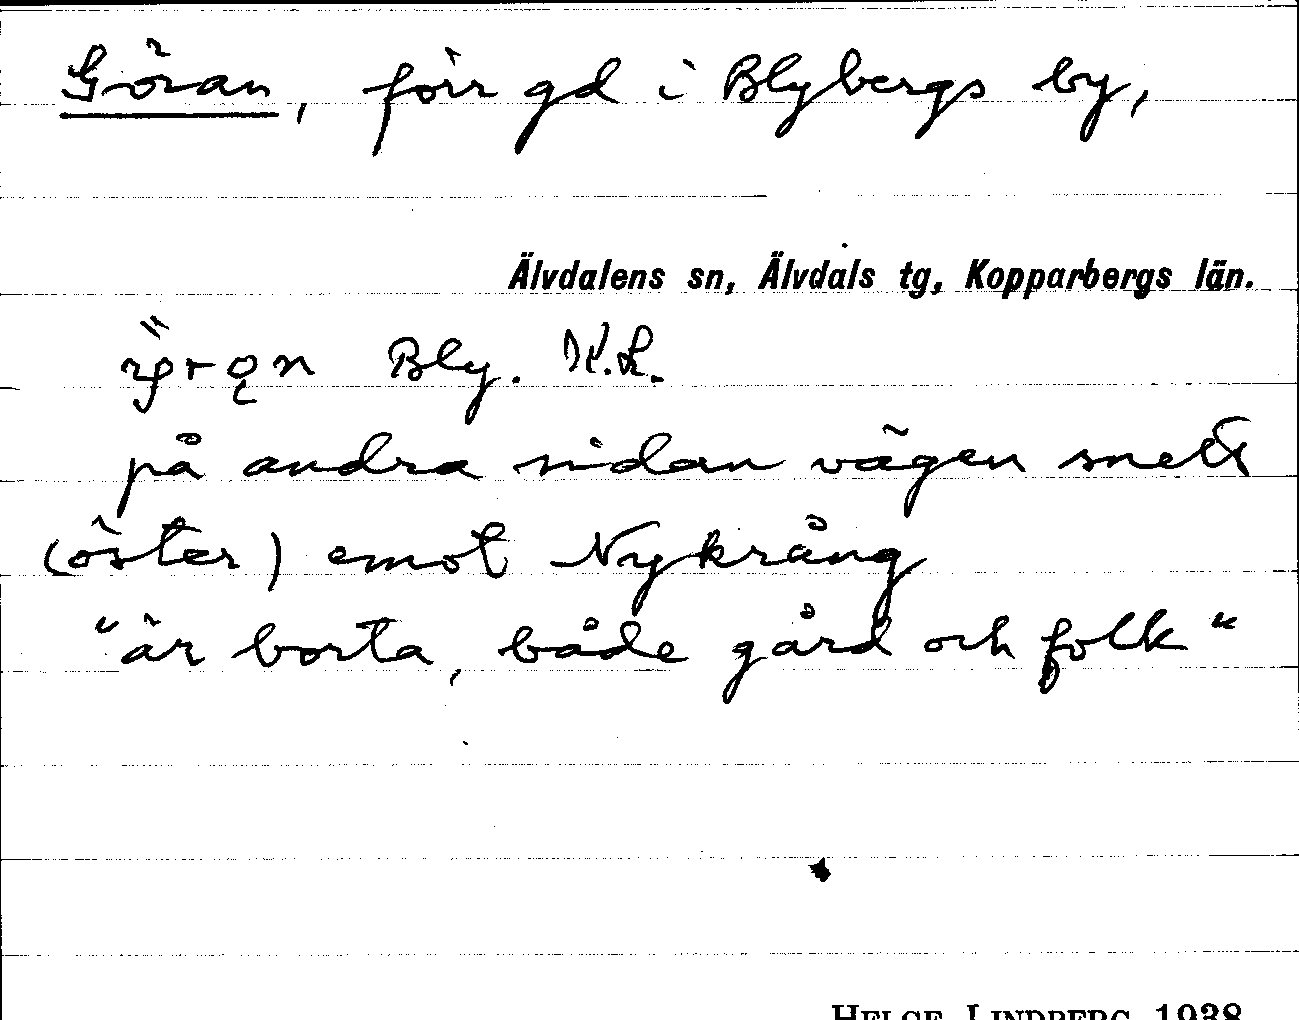 Göran, förr gd i Blybergs by,
Älvdalens sn, Älvdals tg, Kopparbergs län.
Bly. K.L.
på andra sidan vägen snett
(öster) emot Nykrång
"är borta, både gård och folk"
HELGE LINDBERG 1938